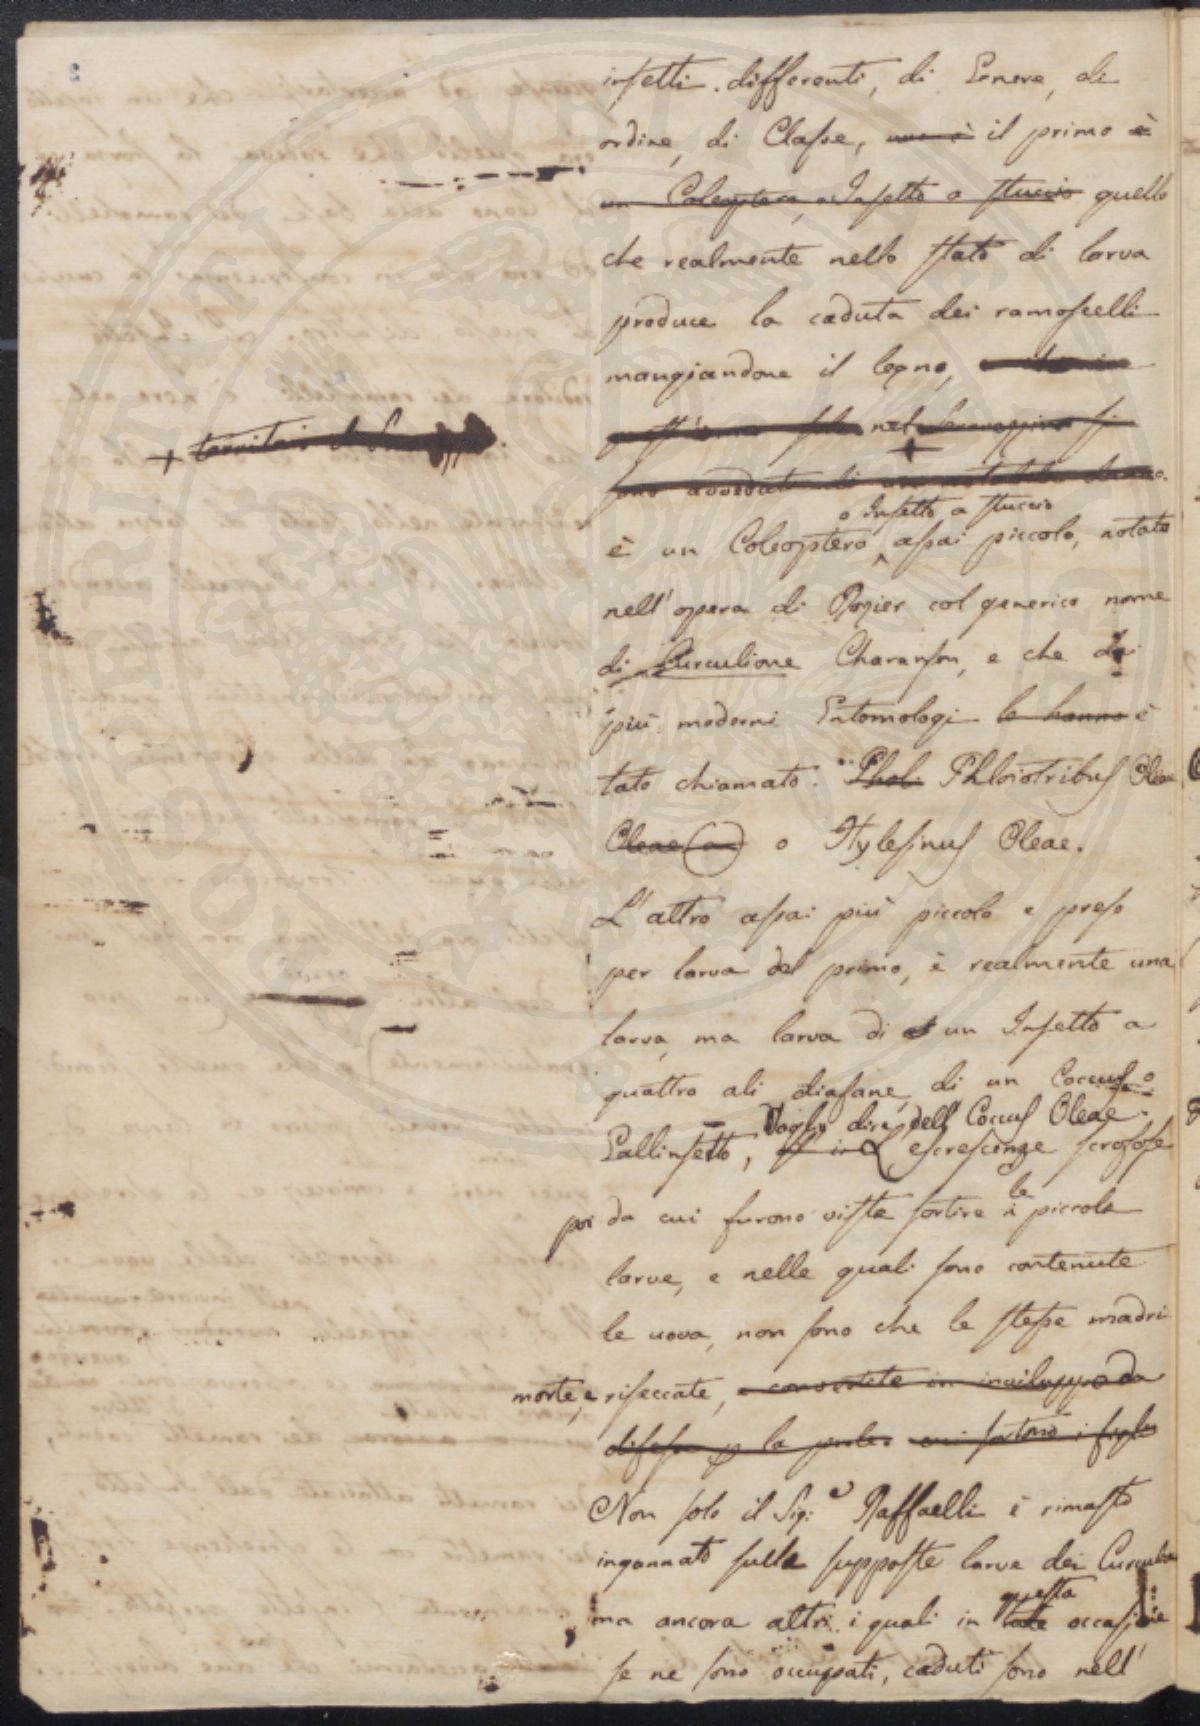 insetti differenti, di Genere, di
ordine, di Classe, uno è il primo è
un Coleoptero, o Insetto a stuccio quello
che realmente nello stato di larva
produce la caduta dei ramoscelli
mangiandone il legno,
nel
+
+
sono avveduti di un notabile danno.
o Insetto a stuccio
è un Coleoptero ^ assai piccolo, notato
nell'opera di Rozier col generico nome
di Curculione Charanson, e che da
più moderni Entomologi lo hanno è
tato chiamato. Phol. Phloiotribus Oleae
Oleae (a) o Hylesinus Oleae.
L'altro assai più piccolo e preso
per larva del primo, è realmente una
larva, ma larva di un Insetto a
quattro ali diafane, di un Coccus o
Voglio dire dell Coccus Oleae.
Gallinsetto, L'escrescenze scrofose
le
poi da cui furono viste sortire i piccole
larve, e nelle quali sono contenute
le uova, non sono che le stesse madri
morte, e riseccate, e convertite in inviluppo da
difesa p la prole. cui sortono i figli
Non solo il Sig:e Raffaelli è rimasto
ingannato sulle supposte larve dei Curculio
questa
ma ancora altri i quali in tale occasione
se ne sono occupati, caduti sono nell'